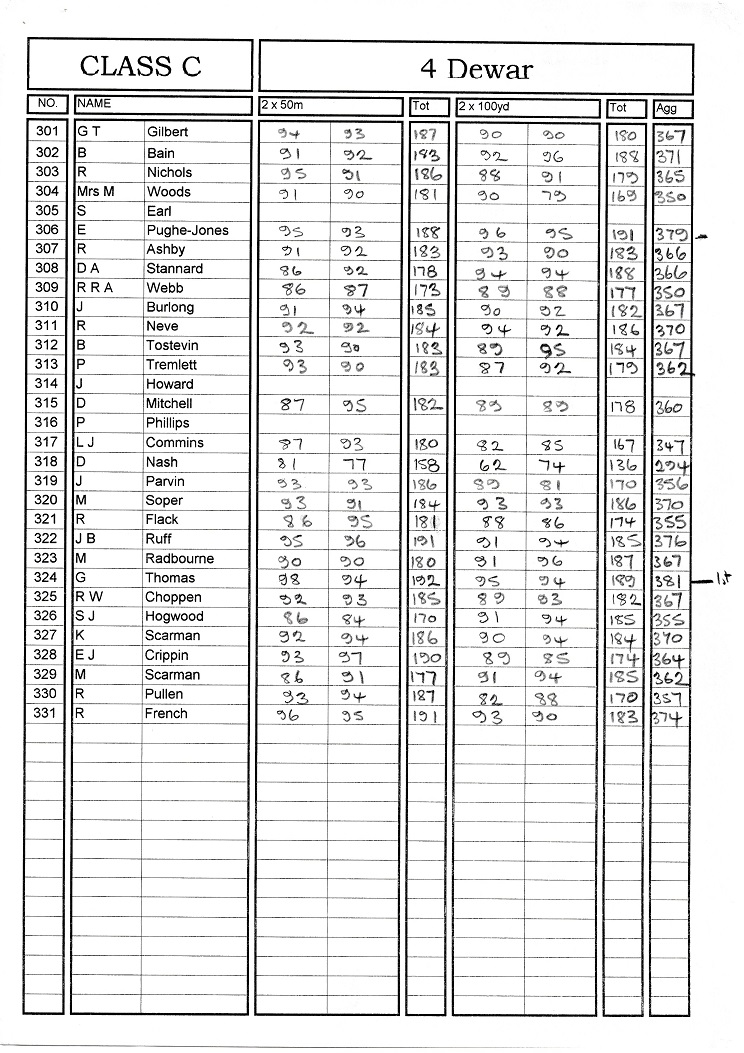 CLASS C 4 Dewar
NO. NAME 2 x 50m Tot 2 x 100yd Tot Agg
301 G T Gilbert 94 93 187 90 90 180 367
302 B Bain 91 92 183 92 96 188 371
303 R Nichols 95 91 186 88 91 179 365
304 Mrs M Woods 91 90 181 90 79 169 350
305 S Earl
306 E Pughe-Jones 95 93 188 96 95 191 379 -
307 R Ashby 91 92 183 93 90 183 366
308 D A Stannard 86 92 178 94 94 188 366
309 R R A Webb 86 87 173 89 88 177 350
310 J Burlong 91 94 185 90 92 182 367
311 R Neve 92 92 184 94 92 186 370
312 B Tostevin 93 90 183 89 95 184 367
313 P Tremlett 93 90 183 87 92 179 362
314 J Howard
315 D Mitchell 87 95 182 89 89 178 360
316 P Phillips
317 L J Commins 87 93 180 82 85 167 347
318 D Nash 81 77 158 62 74 136 294
319 J Parvin 93 93 186 89 81 170 356
320 M Soper 93 91 184 93 93 186 370
321 R Flack 86 95 181 88 86 174 355
322 J B Ruff 95 96 191 91 94 185 376
323 M Radbourne 90 90 180 91 96 187 367
324 G Thomas 98 94 192 95 94 189 381 - 1st
325 R W Choppen 92 93 185 89 93 182 367
326 S J Hogwood 86 84 170 91 94 185 355
327 K Scarman 92 94 186 90 94 184 370
328 E J Crippin 93 97 190 89 85 174 364
329 M Scarman 86 91 177 91 94 185 362
330 R Pullen 93 94 187 82 88 170 357
331 R French 96 95 191 93 90 183 374